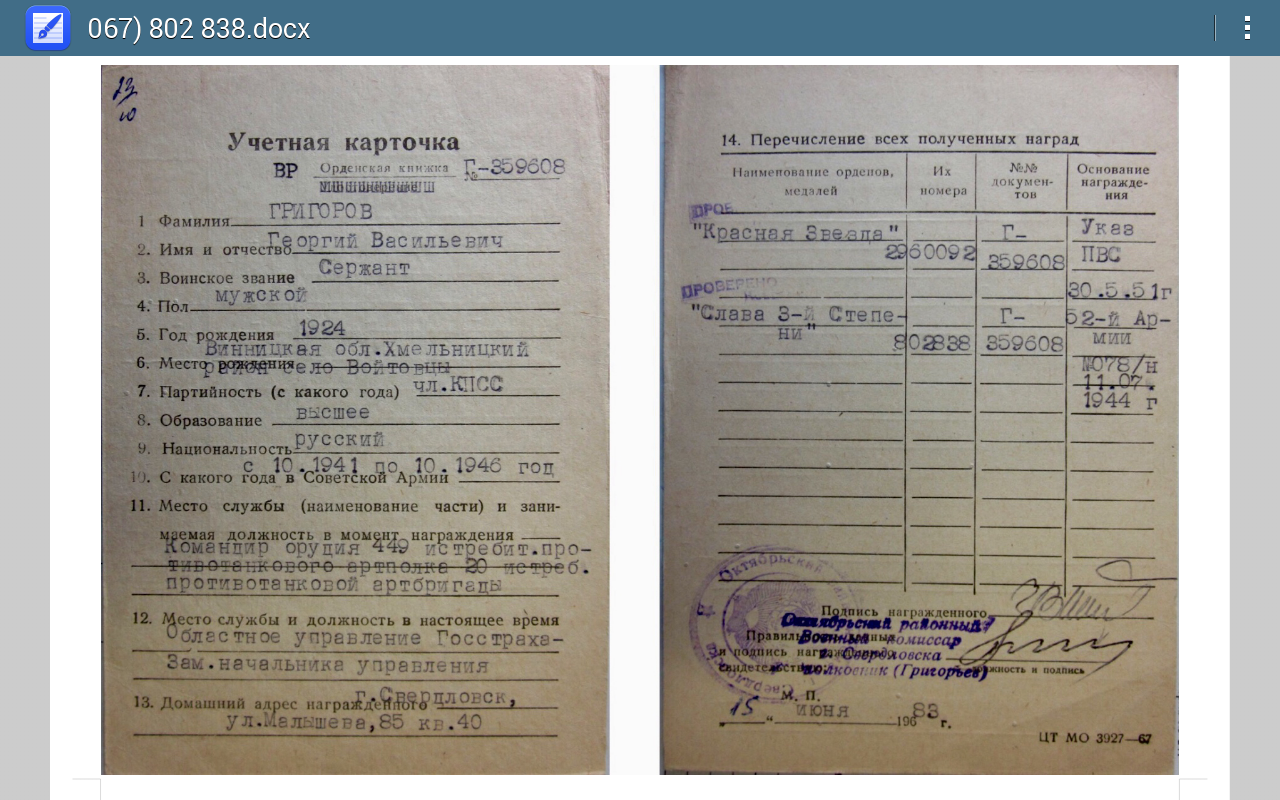 067) 802 838.docx
23
10
Учетная карточка
ВР Орденская книжка Г-359608
№
1 Фамилия ГРИГОРОВ
2. Имя и отчество Георгий Васильевич
3. Воинское звание Сержант
4. Пол мужской
5. Год рождения 1924
Винницкая обл.Хмельницкий
6. Место рождения район село Войтовцы
7. Партийность (с какого года) чл.КПСС
8. Образование высшее
9. Национальность русский
с 10.1941 по 10.1946 год
10. С какого года в Советской Армии
11. Место службы (наименование части) и зани-
маемая должность в момент награждения
Командир орудия 449 истребит.про-
тивотанкового артполка 20 истреб.
противотанковой артбригады
12. Место службы и должность в настоящее время
Областное управление Госстраха-
Зам.начальника управления
13. Домашний адрес награжденного г.Свердловск,
ул.Малышева,85 кв.40
14. Перечисление всех полученных наград
Наименование орденов, медалей
Их номера
№№ докумен-
тов
Основание
награжде-
ния
ПРОВ
"Красная Звезда" 2960092 Г-359608 Указ ПВС 30.5.51г
ПРОВЕРЕНО
"Слава 3-й Степе-
ни" 802838 Г-359608 52-й Ар-
мии
№078/н
11.07.
1944 г
Октябрьский
Подпись награжденного
Октябрьский районный
Военный комиссар
г. Свердловска
полковник (Григорьев)
и подпись
должность и подпись
М. П.
"15" июня 1983 г.
ЦТ МО 3927—67